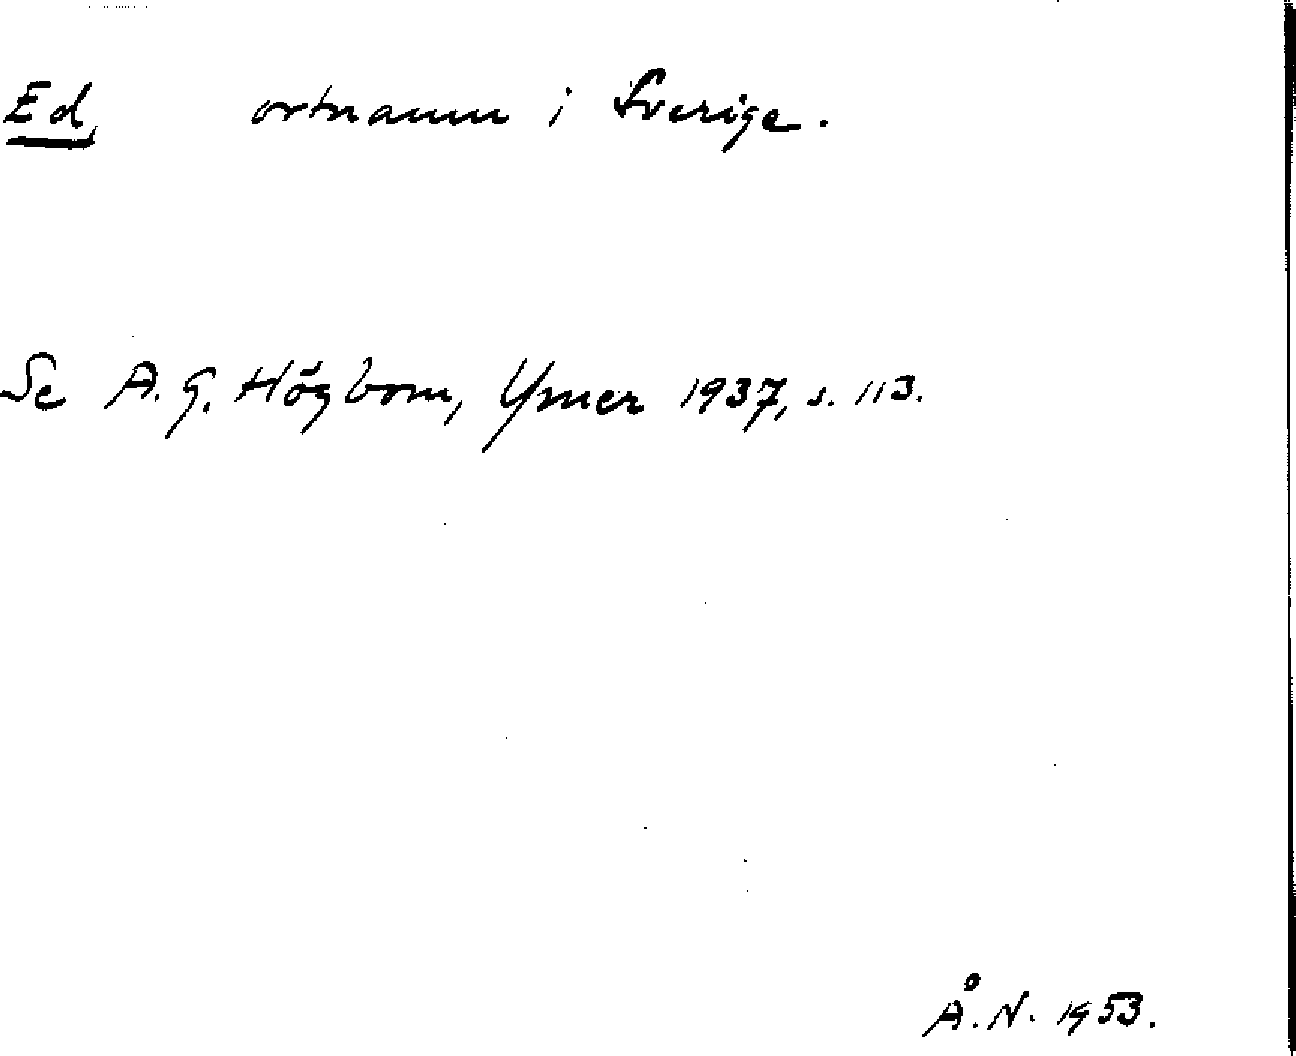 Ed, ortnamn i Sverige.
Se A. G. Högbom, Ymer 1937, s. 113.
Å. N. 1953.